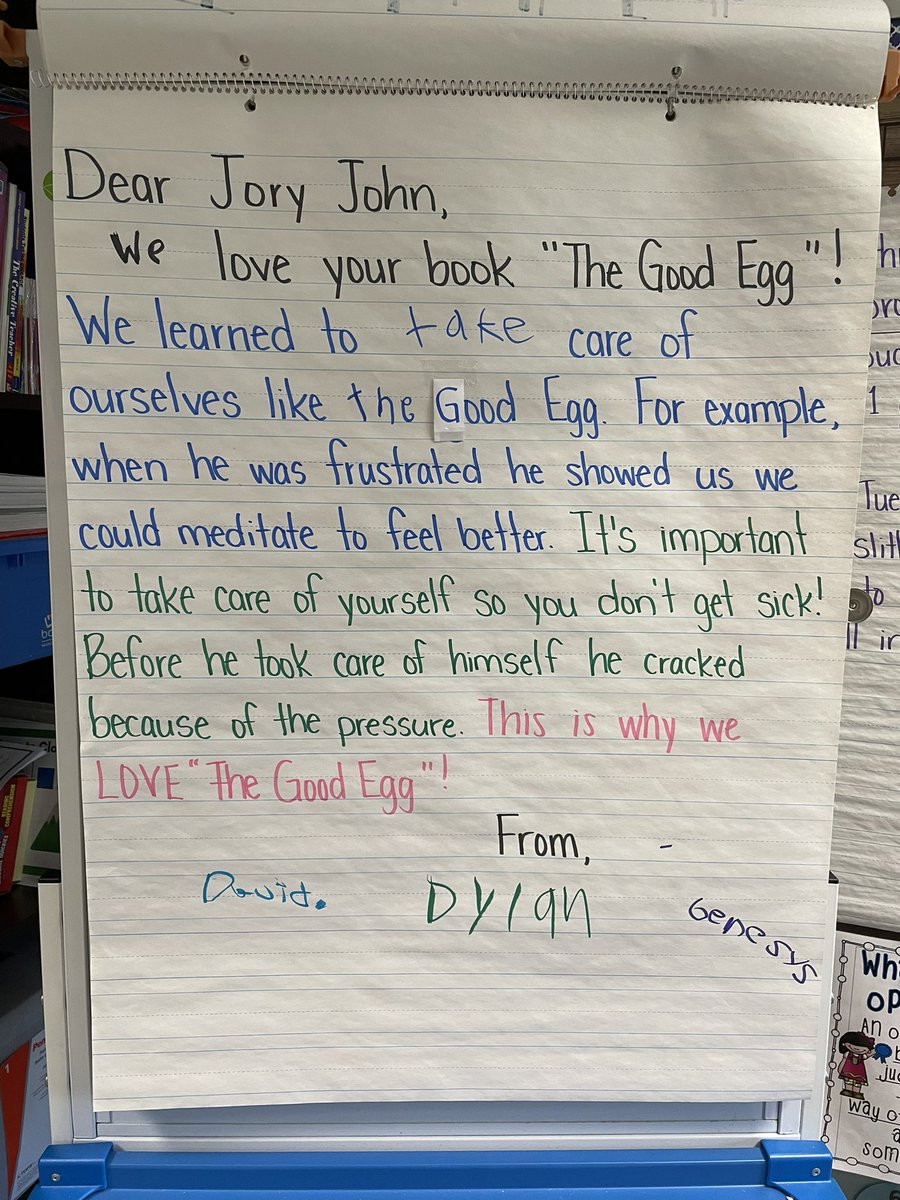 Dear Jory John,
We love your book "The Good Egg"!
We learned to take care of
ourselves like the Good Egg. For example,
when he was frustrated he showed us we
could meditate to feel better. It's important
to take care of yourself so you don't get sick!
Before he took care of himself he cracked
because of the pressure. This is why we
LOVE "The Good Egg"!
From,
David.
Dylan
Genesys
The Creative Teacher
Tue
to
in
Wh
op
An o
way of
a
som